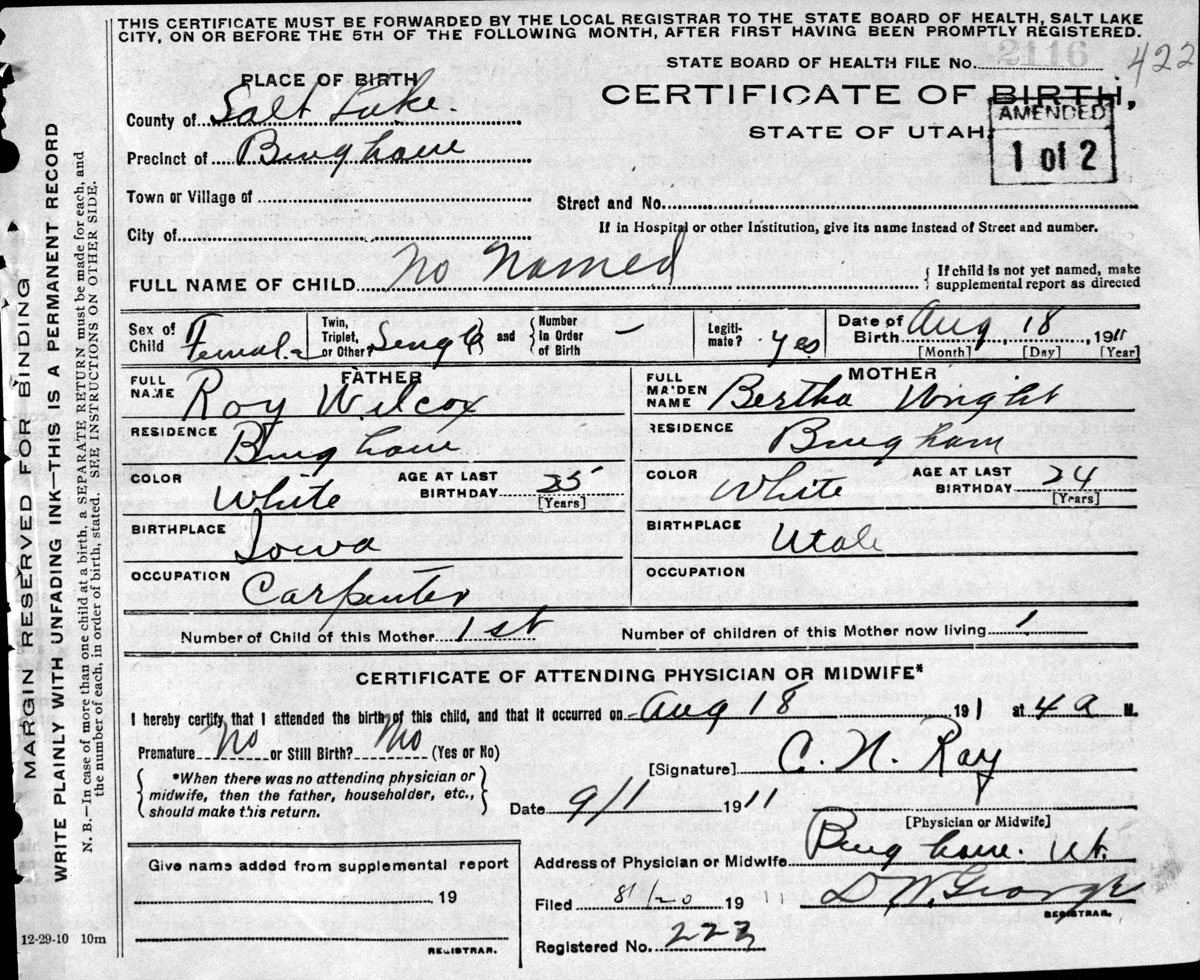 THIS CERTIFICATE MUST BE FORWARDED BY THE LOCAL REGISTRAR TO THE STATE BOARD OF HEALTH, SALT LAKE
CITY, ON OR BEFORE THE 5TH OF THE FOLLOWING MONTH, AFTER FIRST HAVING BEEN PROMPTLY REGISTERED.
STATE BOARD OF HEALTH FILE No. 2116
422
PLACE OF BIRTH
CERTIFICATE OF BIRTH,
STATE OF UTAH
AMENDED
1 of 2
County of Salt Lake.
Precinct of Bingham
Town or Village of
Street and No.
City of
If in Hospital or other Institution, give its name instead of Street and number.
FULL NAME OF CHILD No Named
{ If child is not yet named, make
supplemental report as directed
Sex of
Child Female
Twin,
Triplet,
or Other? Single
and { Number
in Order
of Birth –
Legiti-
mate? yes
Date of
Birth Aug 18, 1911
[Month] [Day] [Year]
FATHER
FULL
NAME Roy Wilcox
RESIDENCE Bingham
COLOR White
AGE AT LAST
BIRTHDAY
[Years]
BIRTHPLACE Iowa
OCCUPATION Carpenter
MOTHER
FULL
MAIDEN
NAME Bertha Wright
RESIDENCE Bingham
COLOR White
AGE AT LAST
BIRTHDAY 24
[Years]
BIRTHPLACE Utah
OCCUPATION
Number of Child of this Mother 1st
Number of children of this Mother now living 1
CERTIFICATE OF ATTENDING PHYSICIAN OR MIDWIFE*
I hereby certify that I attended the birth of this child, and that it occurred on Aug 18 191 at 4 a M.
Premature No or Still Birth? No (Yes or No)
{ *When there was no attending physician or
midwife, then the father, householder, etc.,
should make this return. }
[Signature] C. N. Ray
Date 9/1 1911
[Physician or Midwife]
Address of Physician or Midwife Bingham. Ut.
Filed 8/20 1911 D W. George
REGISTRAR.
Registered No. 223
Give name added from supplemental report
19
REGISTRAR.
12-29-10 10m
MARGIN RESERVED FOR BINDING
WRITE PLAINLY WITH UNFADING INK—THIS IS A PERMANENT RECORD
N. B.—In case of more than one child at a birth, a SEPARATE RETURN must be made for each, and
the number of each, in order of birth, stated. SEE INSTRUCTIONS ON OTHER SIDE.